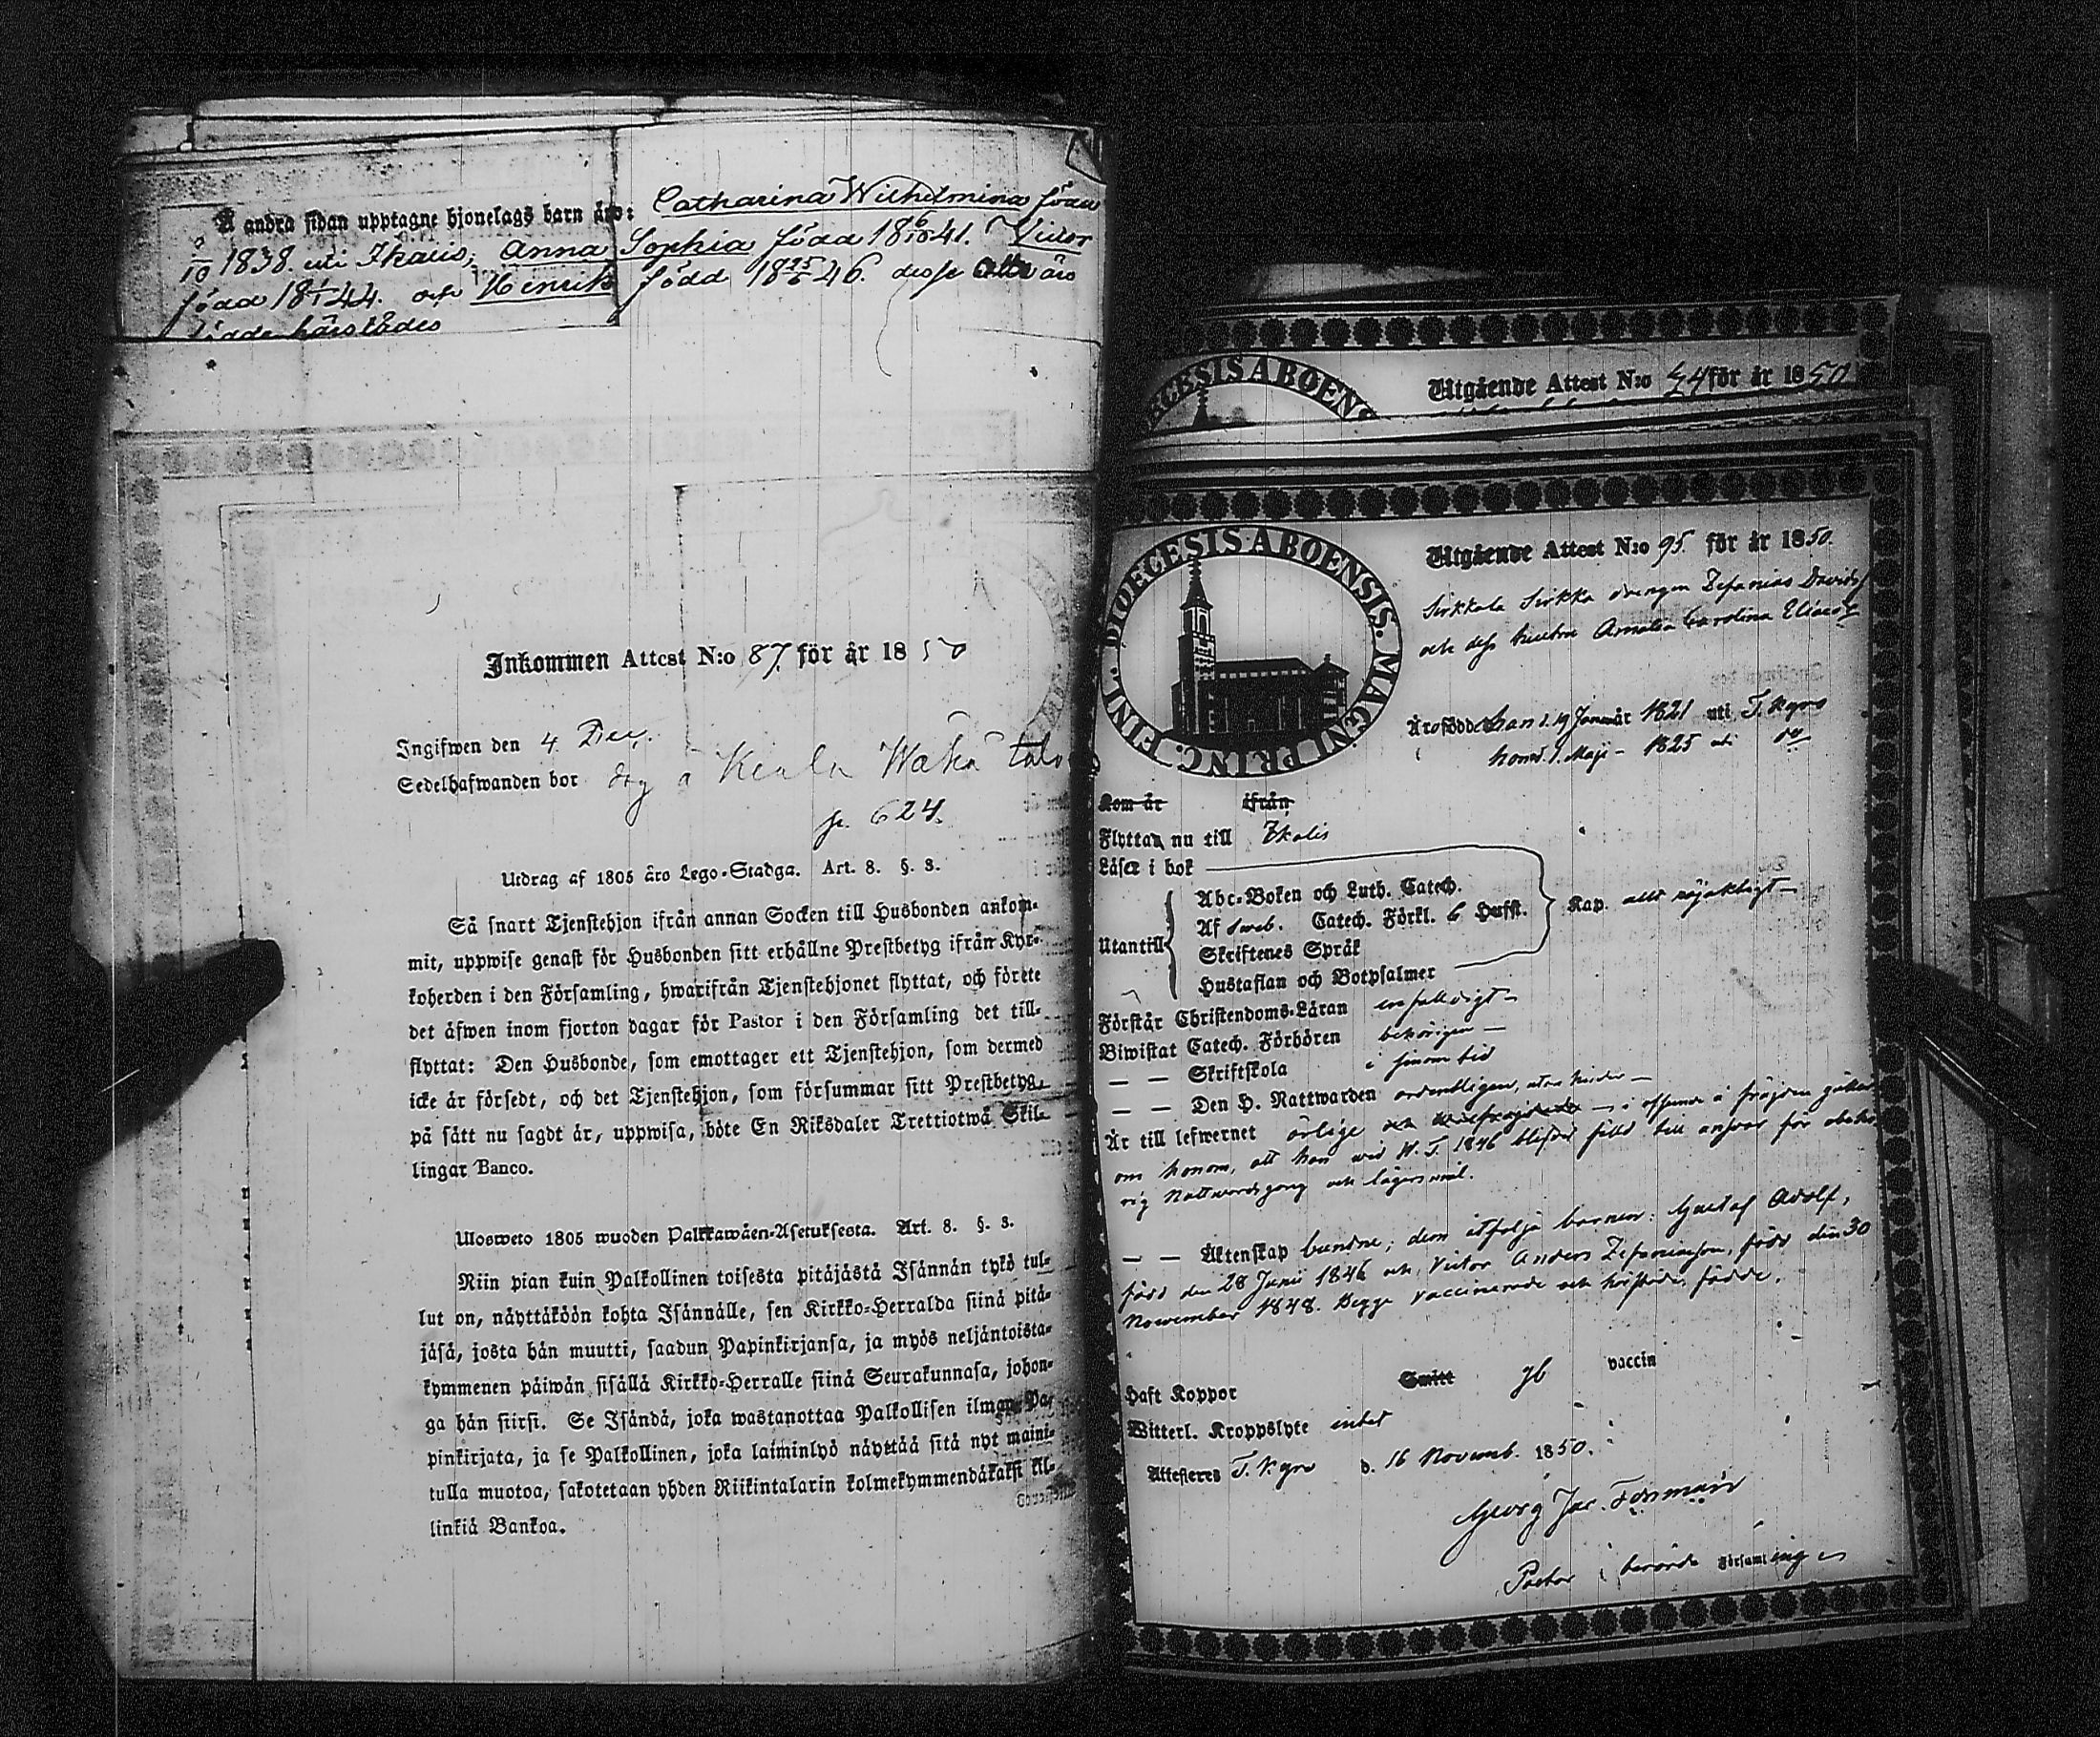 Å andra sidan upptagne hjonelags barn äro: Catharina Wilhelmina född
1838. uti Ikalis, Anna Sophia född 18 6/10 41. Victor
född 18 1/1 44. och Henrik född 18 25/6 46. desse äro
födde härstädes
Inkommen Attest N:o 87. för år 1850
Ingifwen den 4 Dec.
Sedelhafwanden bor
p. 624.
Utdrag af 1805 års Lego-Stadga. Art. 8. §. 3.
Så snart Tjenstehjon ifrån annan Socken till Husbonden ankom-
mit, uppwise genast för Husbonden sitt erhållne Prestbetyg ifrån Kyr-
koherden i den Församling, hwarifrån Tjenstehjonet flyttat, och förete
det äfwen inom fjorton dagar för Pastor i den Församling det till-
flyttat: Den Husbonde, som emottager ett Tjenstehjon, som dermed
icke är försedt, och det Tjenstehjon, som försummar sitt Prestbetyg,
på sätt nu sagdt är, uppwisa, böte En Riksdaler Trettiotwå Skil-
lingar Banco.
Ulosweto 1805 wuoden Palkkawäen-Asetuksesta. Art. 8. §. 3.
Niin pian kuin Palkollinen toisesta pitäjästä Isännän tykö tul-
lut on, näyttäköön kohta Isännälle, sen Kirkko-Herralda siinä pitä-
jäsä, josta hän muutti, saadun Papinkirjansa, ja myös neljäntoista-
kymmenen päiwän sisällä Kirkko-Herralle siinä Seurakunnasa, johon-
ga hän siirsi. Se Isändä, joka wastanottaa Palkollisen ilman Pa-
pinkirjata, ja se Palkollinen, joka laiminlyö näyttää sitä nyt maini-
tulla muotoa, sakotetaan yhden Riikintalarin kolmekymmendäkaksi kil-
linkiä Bankoa.
DIOECESIS ABOENSIS
Utgående Attest N:o 54 för år 1850
DIOECESIS ABOENSIS. MAGNI PRINC. FINL.
Utgående Attest N:o 95. för år 1850.
Sirkkala Sirkka drengen Zefanias Davids
och dess hustru Amalia Carolina Elias
Äro födde han d. 19 Januar 1821 uti T. Kyro
hon d. 1. Maji 1825 uti do
Kom år ifrån
Flyttan nu till Ikalis
Läsa i bok
Utantill
Abc-Boken och Luth. Catech.
Af Sveb. Catech. Förkl. 6 Hufst.
Skriftenes Språk
Hustaflan och Botpsalmer
Kap. allt nöjaktigt
Förstår Christendoms-Läran enfaldigt
Biwistat Catech. Förhören behörigen
— — Skriftskola i sinom tid
— — Den H. Nattwarden ordentligen, utan hinder
Är till lefwernet ärlige och
om honom, att han wid W. T. 1846 blifwit fälld till answar för
Nattwardsgång och lägersmål.
— — Äktenskap bundne; dem åtfölja barnen: Gustaf Adolf,
född den 28 Junii 1846 och Victor Anders Zefaniasson, född den 30
November 1848. Begge vaccinerade och härstädes födde.
Haft Koppor Smitt gb vaccin
Witterl. Kroppslyte intet
Attesteres T. Kyro d. 16 Novemb. 1850.
Georg Jac. Forsman
Pastor i berörde Församlingen